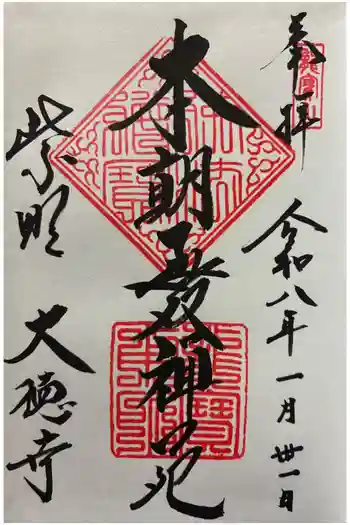 奉拝
令和八年一月卅一日
本朝無双禅苑
紫野 大徳寺